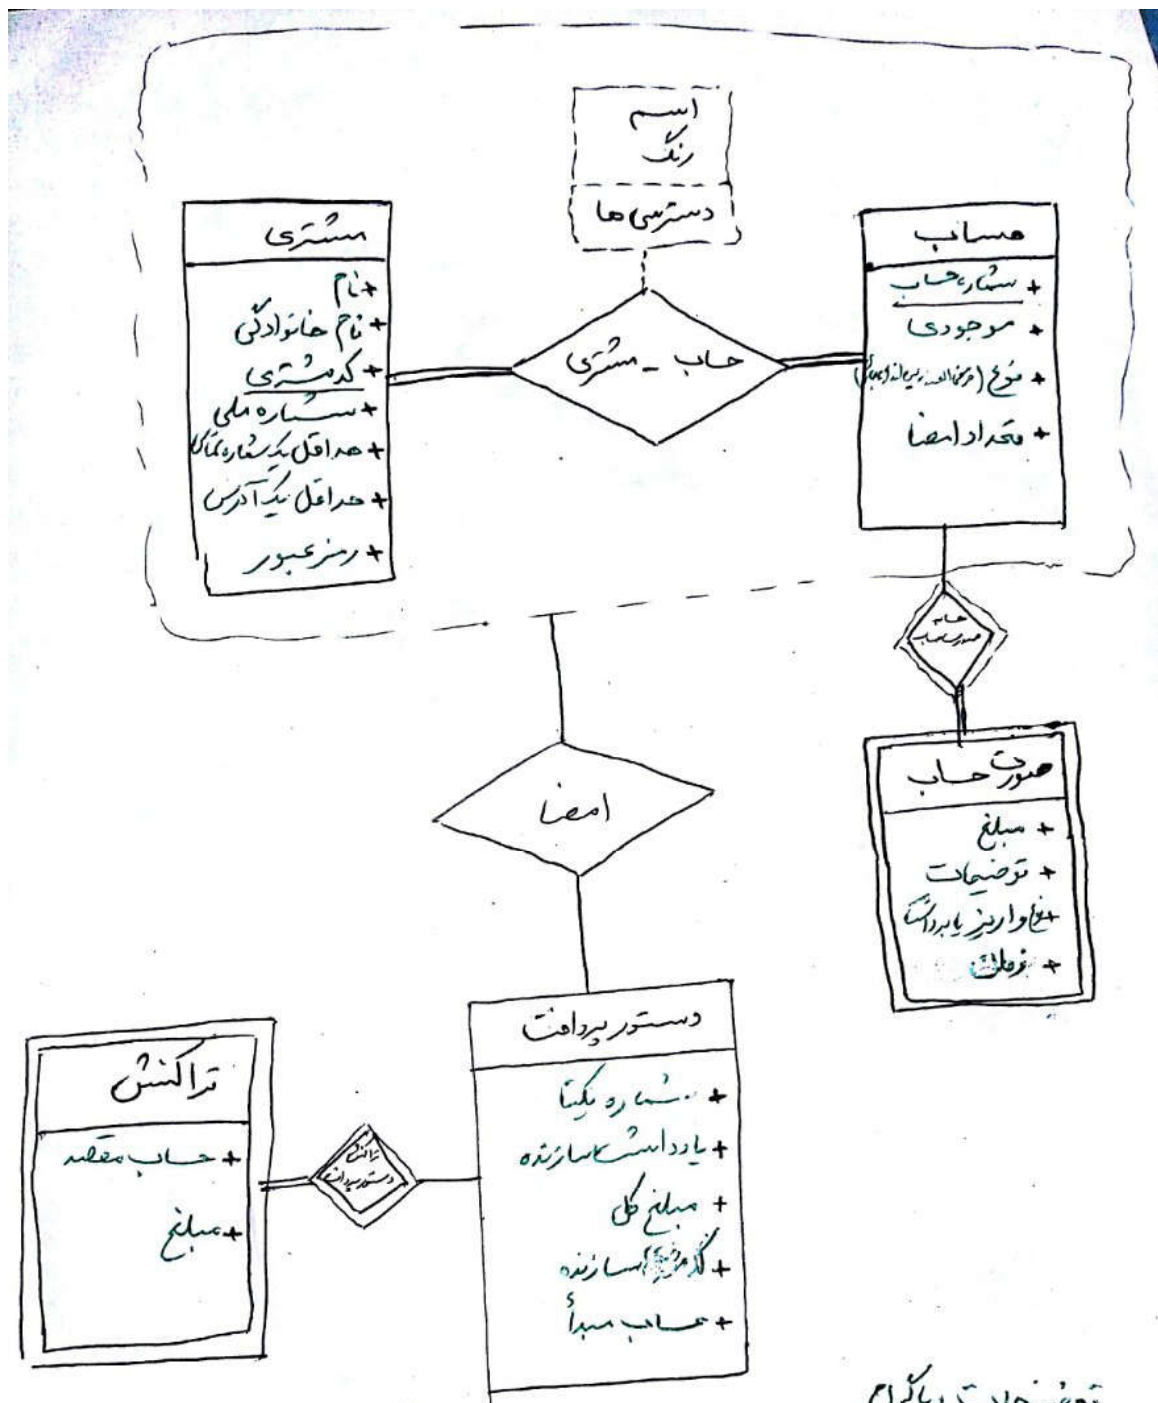 اسم
رنگ
دسترسی ها
مشتری
+ نام
+ نام خانوادگی
+ کد مشتری
+ شماره ملی
+ حداقل یک شماره تماس
+ حداقل یک آدرس
+ رمز عبور
حساب - مشتری
حساب
+ شماره حساب
+ موجودی
+ نوع
+ تعداد امضا
صورت حساب
+ مبلغ
+ توضیحات
+ نوع واریز یا برداشت
+ زمان
امضا
دستور پرداخت
+ شماره یکتا
+ یادداشت سازنده
+ مبلغ کل
+ کد مشتری سازنده
+ حساب مبدأ
تراکنش
دستور پرداخت
تراکنش
+ حساب مقصد
+ مبلغ